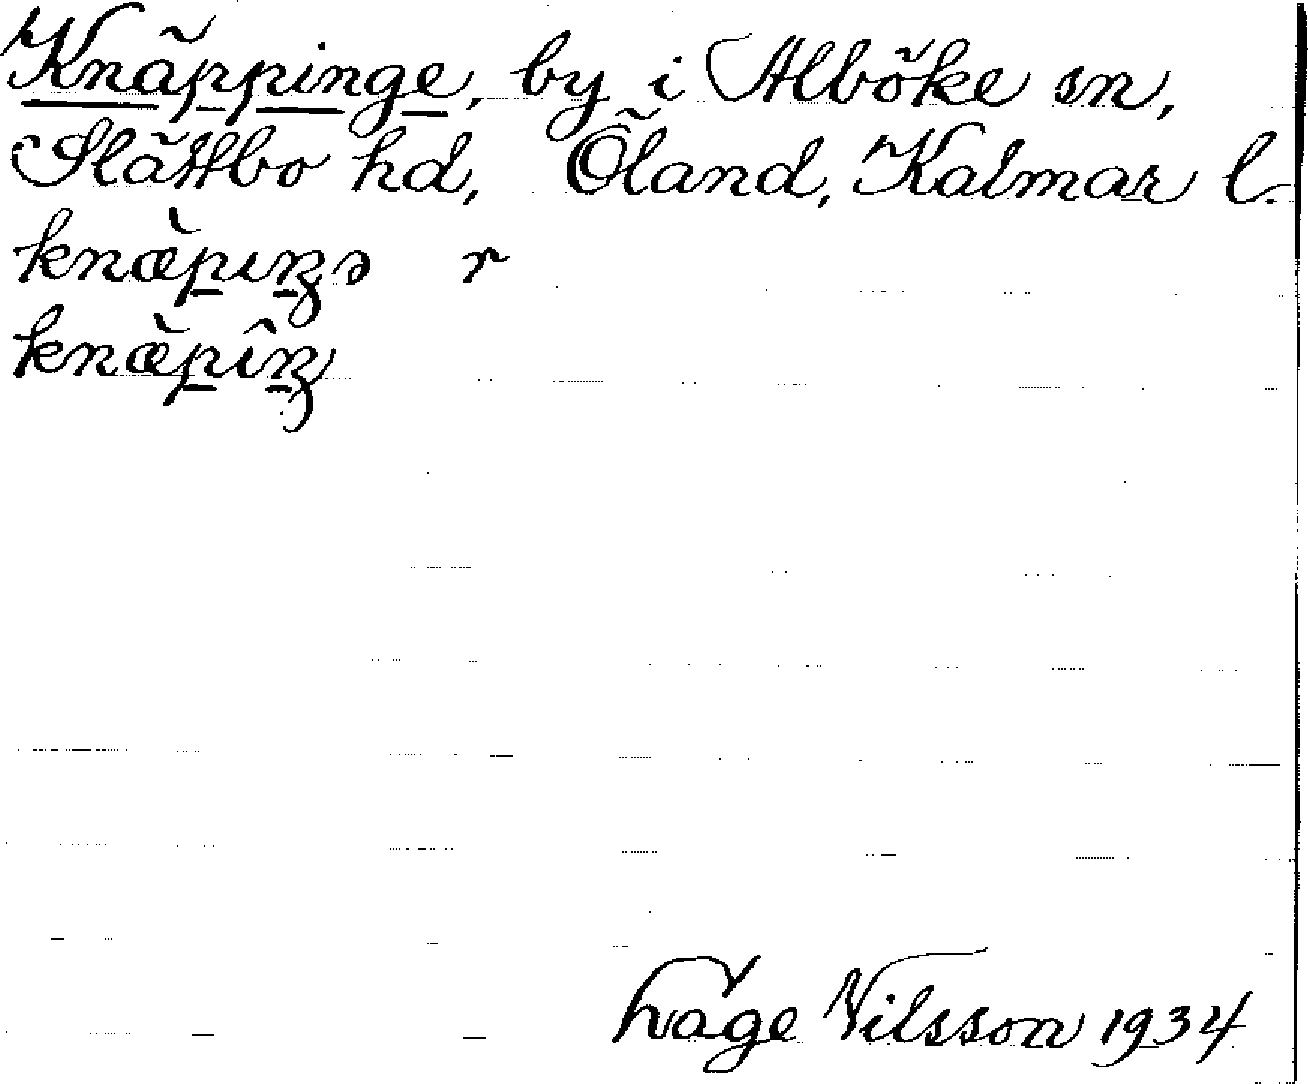 Knäppinge, by i Alböke sn,
Slättbo hd, Öland, Kalmar l.
knæ̀pıŋə r
knæ̀pîŋ
Håge Nilsson 1934